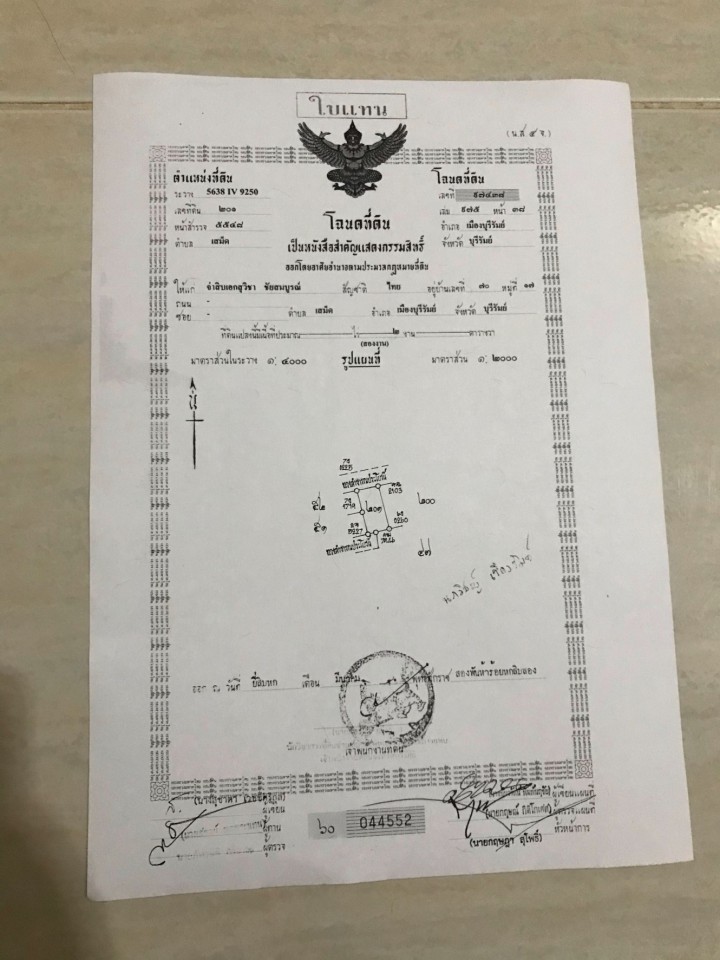 ใบแทน
(น.ส.๔ จ.)
ตำแหน่งที่ดิน
ระวาง 5638 IV 9250
เลขที่ดิน ๒๐๑
หน้าสำรวจ ๕๕๔๘
ตำบล เสม็ด
โฉนดที่ดิน
เลขที่ ๙๗๔๓๘
เล่ม ๙๗๕ หน้า ๓๘
อำเภอ เมืองบุรีรัมย์
จังหวัด บุรีรัมย์
โฉนดที่ดิน
เป็นหนังสือสำคัญแสดงกรรมสิทธิ์
ออกโดยอาศัยอำนาจตามประมวลกฎหมายที่ดิน
ให้แก่ จ่าสิบเอกสุวิชา ชัยสมบูรณ์ สัญชาติ ไทย อยู่บ้านเลขที่ ๗๐ หมู่ที่ ๑๗
ถนน -
ซอย - ตำบล เสม็ด อำเภอ เมืองบุรีรัมย์ จังหวัด บุรีรัมย์
ที่ดินแปลงนี้มีเนื้อที่ประมาณ - ไร่ ๒ งาน - ตารางวา
(สองงาน)
มาตราส่วนในระวาง ๑: ๔๐๐๐ รูปแผนที่ มาตราส่วน ๑: ๒๐๐๐
น
ทางสาธารณประโยชน์
๒๐๑
๒๐๐
๕๒
๕๑
๔๗
ทางสาธารณประโยชน์
ออก ณ วันที่ ยี่สิบหก เดือน มีนาคม พุทธศักราช สองพันห้าร้อยหกสิบสอง
เจ้าพนักงานที่ดิน
ผู้เขียน
ผู้ทาน
ผู้ตรวจ
๖๐ 044552
ผู้เขียนแผนที่
ผู้ตรวจแผนที่
หัวหน้าการ
(นายกฤษฎา สุโพธิ์)